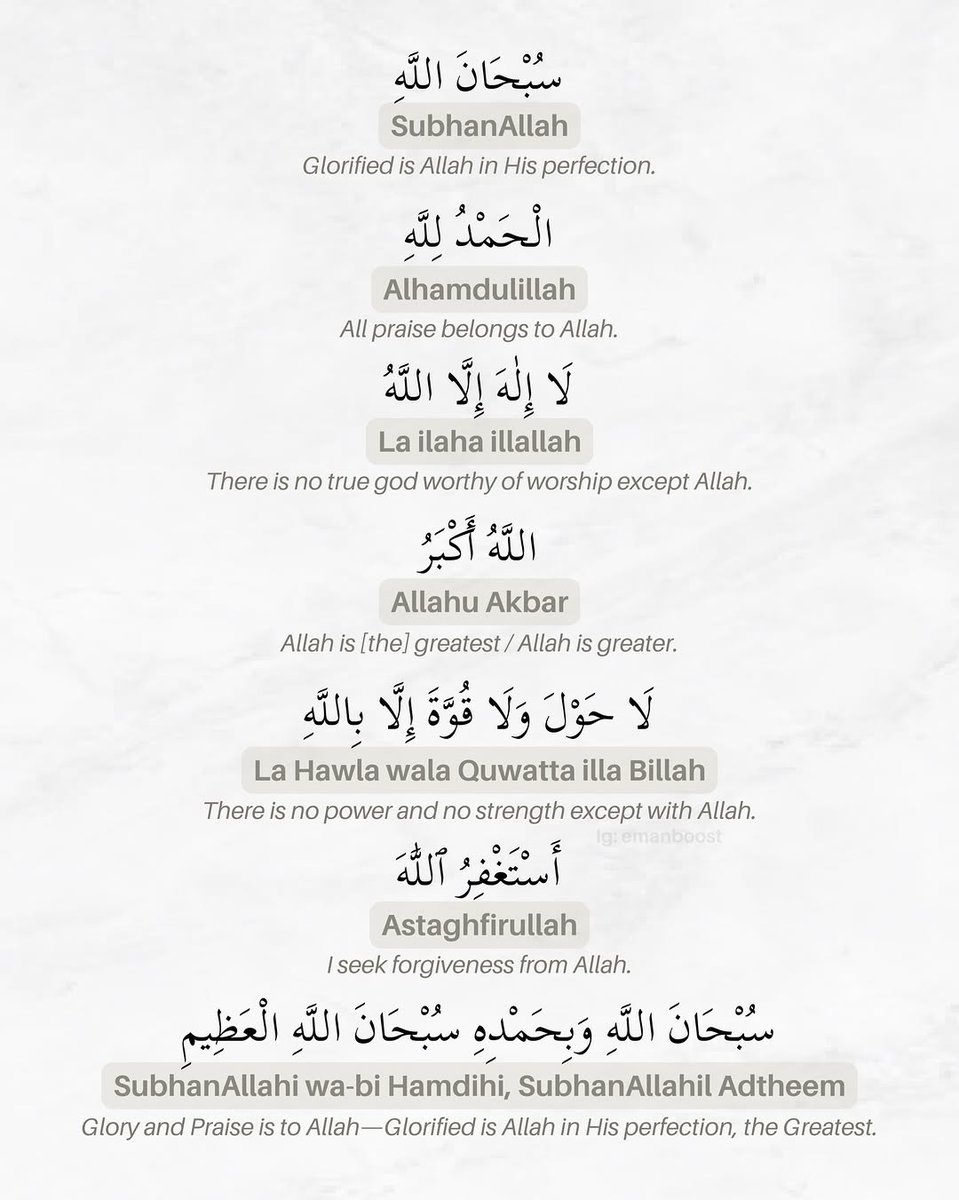 سُبْحَانَ اللَّهِ
SubhanAllah
Glorified is Allah in His perfection.
الْحَمْدُ لِلَّهِ
Alhamdulillah
All praise belongs to Allah.
لَا إِلٰهَ إِلَّا اللَّهُ
La ilaha illallah
There is no true god worthy of worship except Allah.
اللَّهُ أَكْبَرُ
Allahu Akbar
Allah is [the] greatest / Allah is greater.
لَا حَوْلَ وَلَا قُوَّةَ إِلَّا بِاللَّهِ
La Hawla wala Quwatta illa Billah
There is no power and no strength except with Allah.
Ig: emanboost
أَسْتَغْفِرُ ٱللَّٰهَ
Astaghfirullah
I seek forgiveness from Allah.
سُبْحَانَ اللَّهِ وَبِحَمْدِهِ سُبْحَانَ اللَّهِ الْعَظِيمِ
SubhanAllahi wa-bi Hamdihi, SubhanAllahil Adtheem
Glory and Praise is to Allah—Glorified is Allah in His perfection, the Greatest.